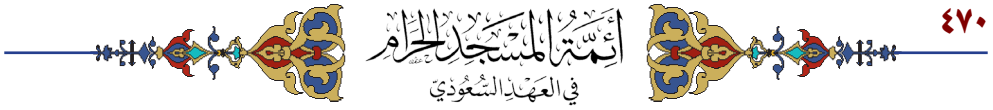 ٤٧٠
أَئِمَّةُ المَسْجِدِ الحَرَامِ
فِي العَهْدِ السُّعُودِيّ